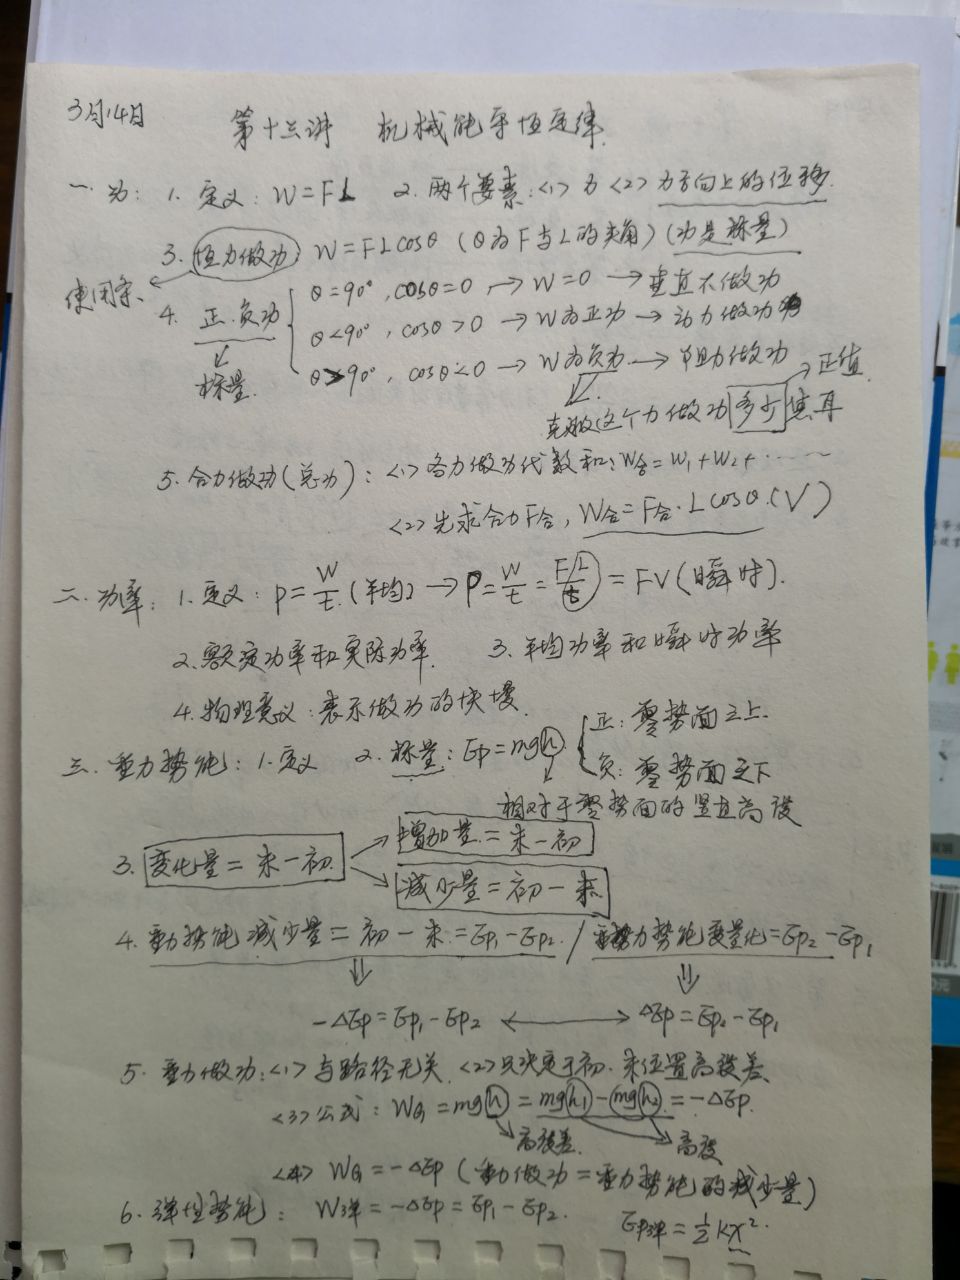 3月14日
第十三讲 机械能守恒定律.
一.功: 1.定义: W=FL 2.两个要素:<1>力<2>力方向上的位移.
3.恒力做功: W=FLcosθ (θ为F与L的夹角)(功是标量)
使用条.
4.正.负功
θ=90°,cosθ=0 → W=0 → 垂直不做功
θ<90°,cosθ>0 → W为正功 → 动力做功
θ>90°,cosθ<0 → W为负功 → 阻力做功
标量.
正值.
克服这个力做功多少焦耳
5.合力做功(总功): <1>各力做功代数和:W合=W1+W2+……
<2>先求合力F合, W合=F合·Lcosθ.(√)
二.功率: 1.定义: P=W/t.(平均) → P=W/t=FL/t=FV(瞬时).
2.额定功率和实际功率. 3.平均功率和瞬时功率
4.物理意义:表示做功的快慢.
三.重力势能: 1.定义 2.标量: Ep=mgh
正:零势面之上.
负:零势面之下
相对于零势面的竖直高度
3.变化量=末-初.
增加量=末-初
减少量=初-末.
4.重力势能减少量=初-末.=Ep1-Ep2. / 重力势能变量化=Ep2-Ep1
-ΔEp=Ep1-Ep2 ↔ ΔEp=Ep2-Ep1
5.重力做功:<1>与路径无关.<2>只决定于初.末位置高度差.
<3>公式: WG=mgh=mgh1-mgh2=-ΔEp.
高度差. 高度
<4> WG=-ΔEp (重力做功=重力势能的减少量)
6.弹性势能: W弹=-ΔEp=Ep1-Ep2. Ep弹=½kx².